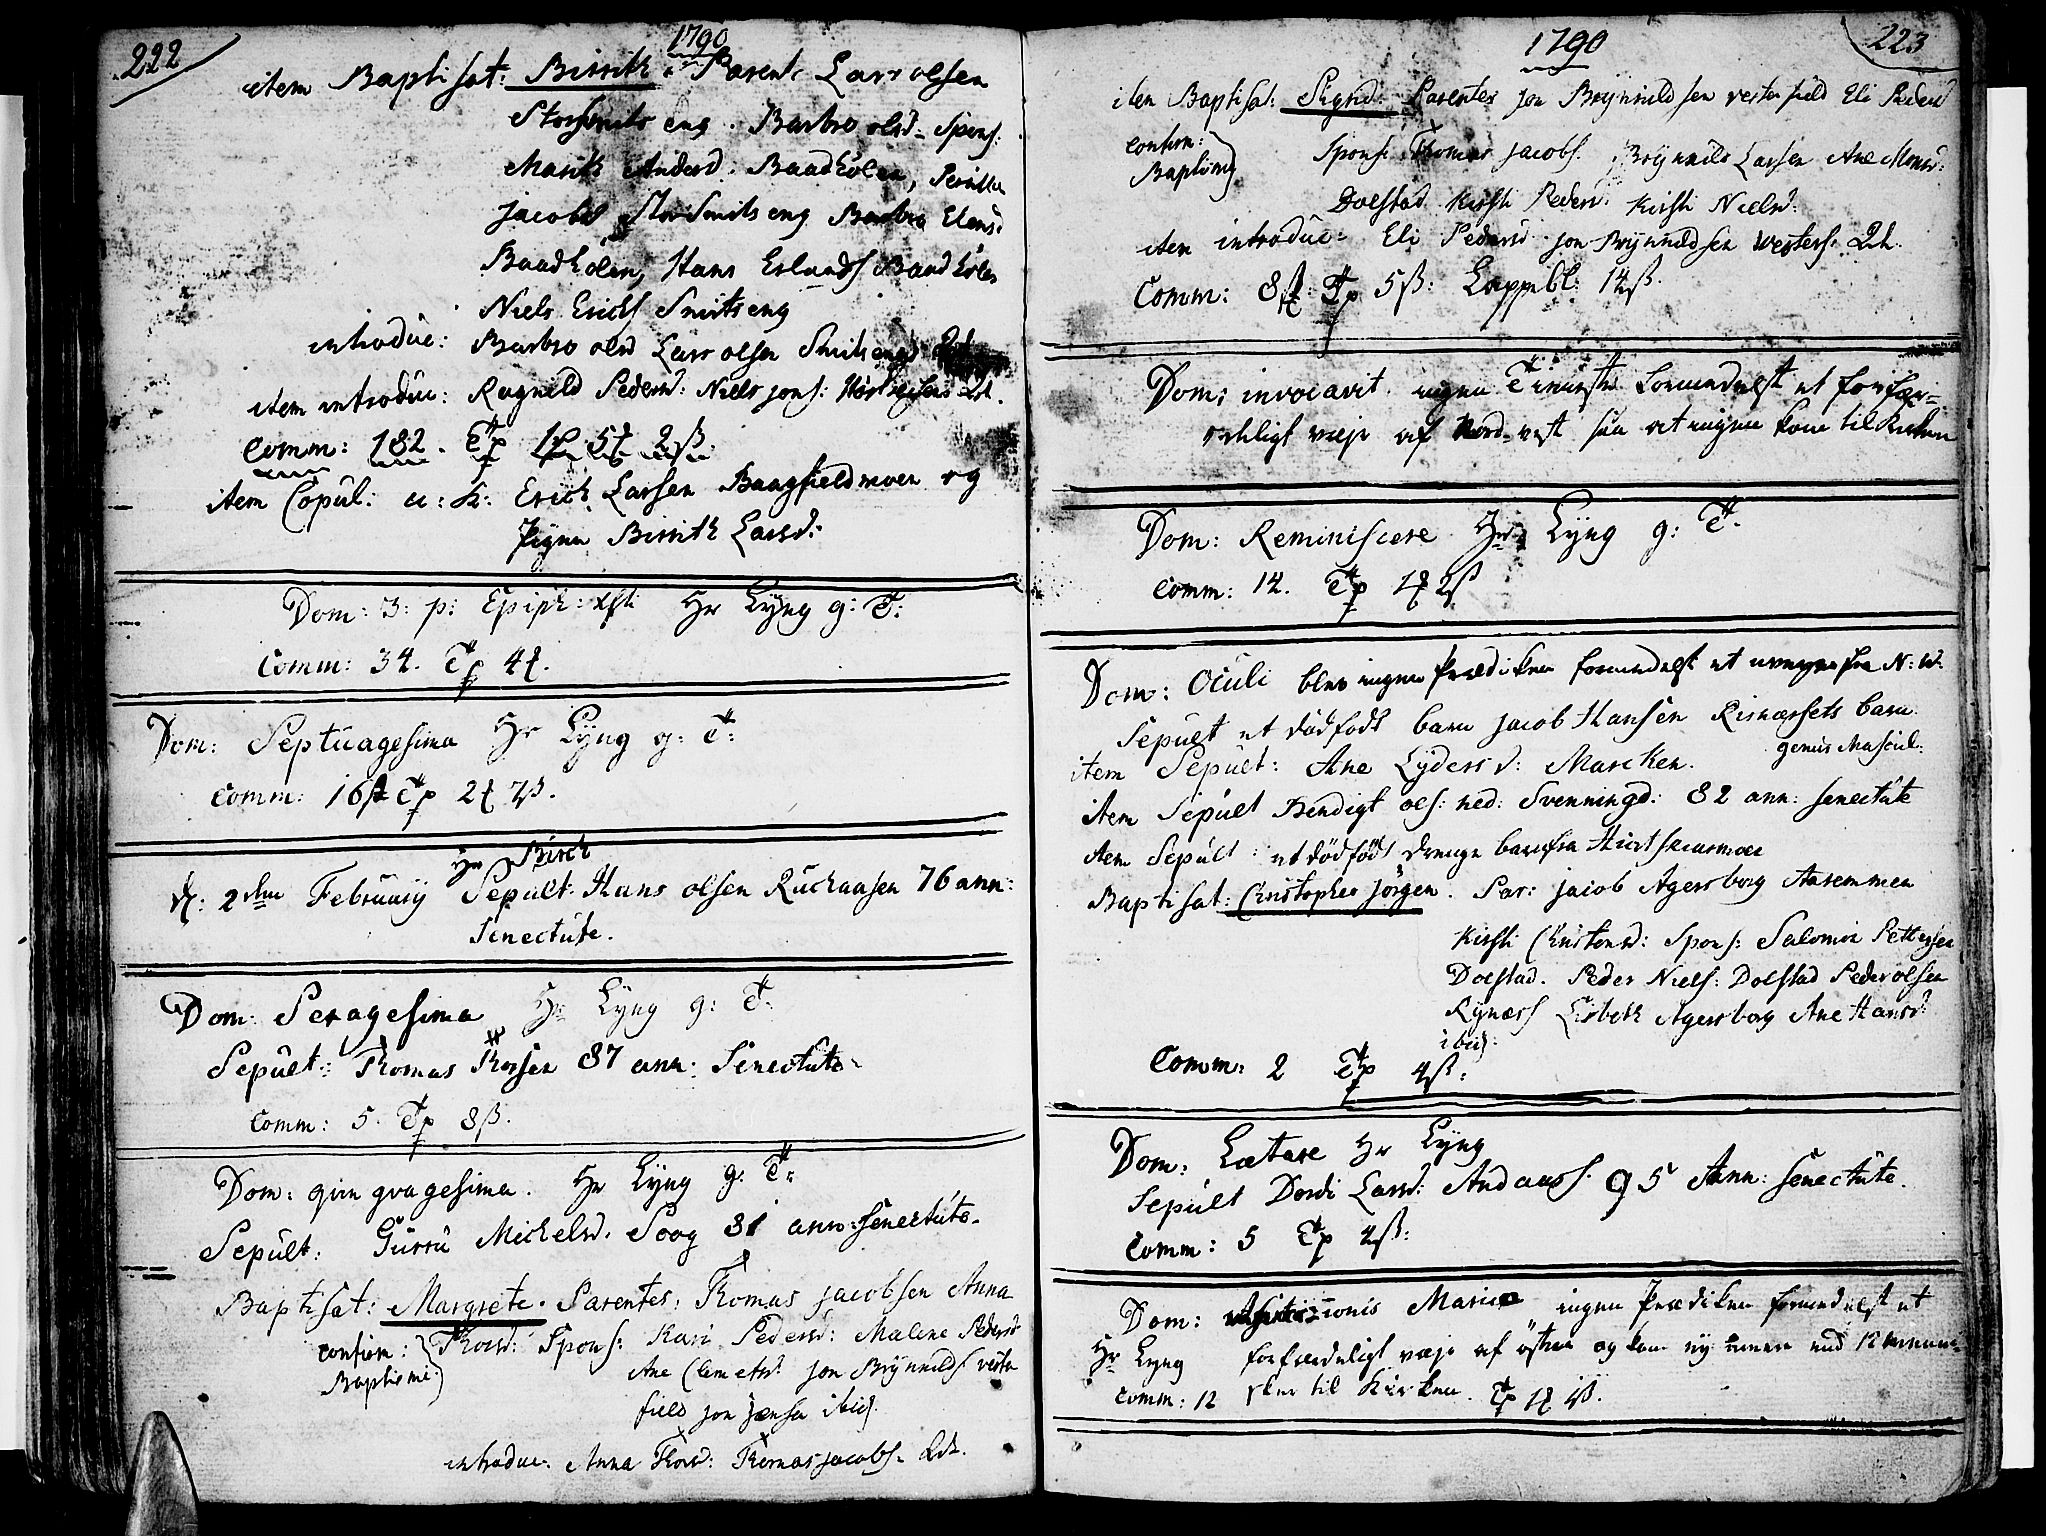 222
1790
item Baptisat: Birrith. Parent: Lars olsen
Storsmits eng. Barbro olsd. Spons:
Marith Andersd. Baadhölen, Pernilla
Jacobsd Stor Smits eng Barbro Elens:
Baadholen, Hans Erlands Baadhölen
Niels Erichs Smitseng
introduc: Barbro olsd Lars olsen Smitseng
item introduc: Ragnild Pedersd: Niels jons: 2d.
Comm: 182. Tp 1 5 2ß.
item Copul: u: K: Erich Larsen Baagfieldmoen og
Pigen Birrith Larsd:
Dom: 3: p: Epiph: Xsti Hr Lyng g: T:
Comm: 34. Tp 4
Dom: Septuagesima Hr Lyng g: T:
Comm: 16 Tp 2 7ß.
Hr Birch
d: 2den February Sepult: Hans olsen 76 ann:
Senectute.
Dom: Sexagesima Hr Lyng g: T.
Sepult: Thomas Thorsen 87 ann: Senectute.
Comm: 5. Tp 8ß.
Dom: qvin qvagesima. Hr Lyng g: T:
Sepult: Gurru Michelsd. Soog 81 ann: senectute.
Baptisat: Margrete. Parentes: Thomas jacobsen Anna
confirm: Thorsd: Spons: Kari Pedersd: Malene Pedersd
Baptismi: Ane Clemetsd. Jon Brynnilds vester
field jon jensen ibid
introduc. Anna Thorsd: Thomas jacobs. 2d.
1790
223
item Baptisat: Sigrid. Parentes jon Brynnildsen vesterfield Eli Pedersd
confirm: Spons: Thomas jacobs. Brynnild Larsen Ane Monsd:
Baptismi Dolstad Kirsti Pedersd. Kirsti Nielsd.
item introduc: Eli Pedersd jon Brynnildsen vesterf. 2d.
Comm: 8 Tp 5ß: Lappebl: 14ß.
Dom: invocavit. ingen Tieniste formedelst et forfær-
deligt vejr af Nord-vest saa at ingen kom til Kirken
Dom: Reminiscere. Hr. Lyng g: T.
Comm: 14. Tp 1 2ß
Dom: Oculi blev ingen Prædiken formedelst et uvejr fra N:W.
Sepult et dödfödt barn jacob Hansen Risnæssets barn
genus Mascul:
item Sepult: Ane Lydersd: Marcken.
item Sepult Bendigt ols: ned: Svenningd: 82 ann: senectute
item Sepult: et dödfödt drenge barn fra
Baptisat: Christopher Jörgen. Par: jacob Agersborg Aaremmen
Kirsti Christensd: Spons: Salomon Pettersen
Dolstad. Peder Niels: Dolstad Peder olsen
Rynæss Lisbeth Agersborg Ane Hansd:
ibid:
Comm: 2 Tp 4ß:
Dom: Lætare Hr Lyng
Sepult Dordi Larsd: Andaas. 95 Ann: senectute.
Comm: 5 Tp 2ß:
Dom: Mariæ ingen Prædiken formedelst et
Hr Lyng forfærdeligt vejr af östen og kom ey mere end 12 menne-
Comm: 12 sker til Kirken. Tp 1